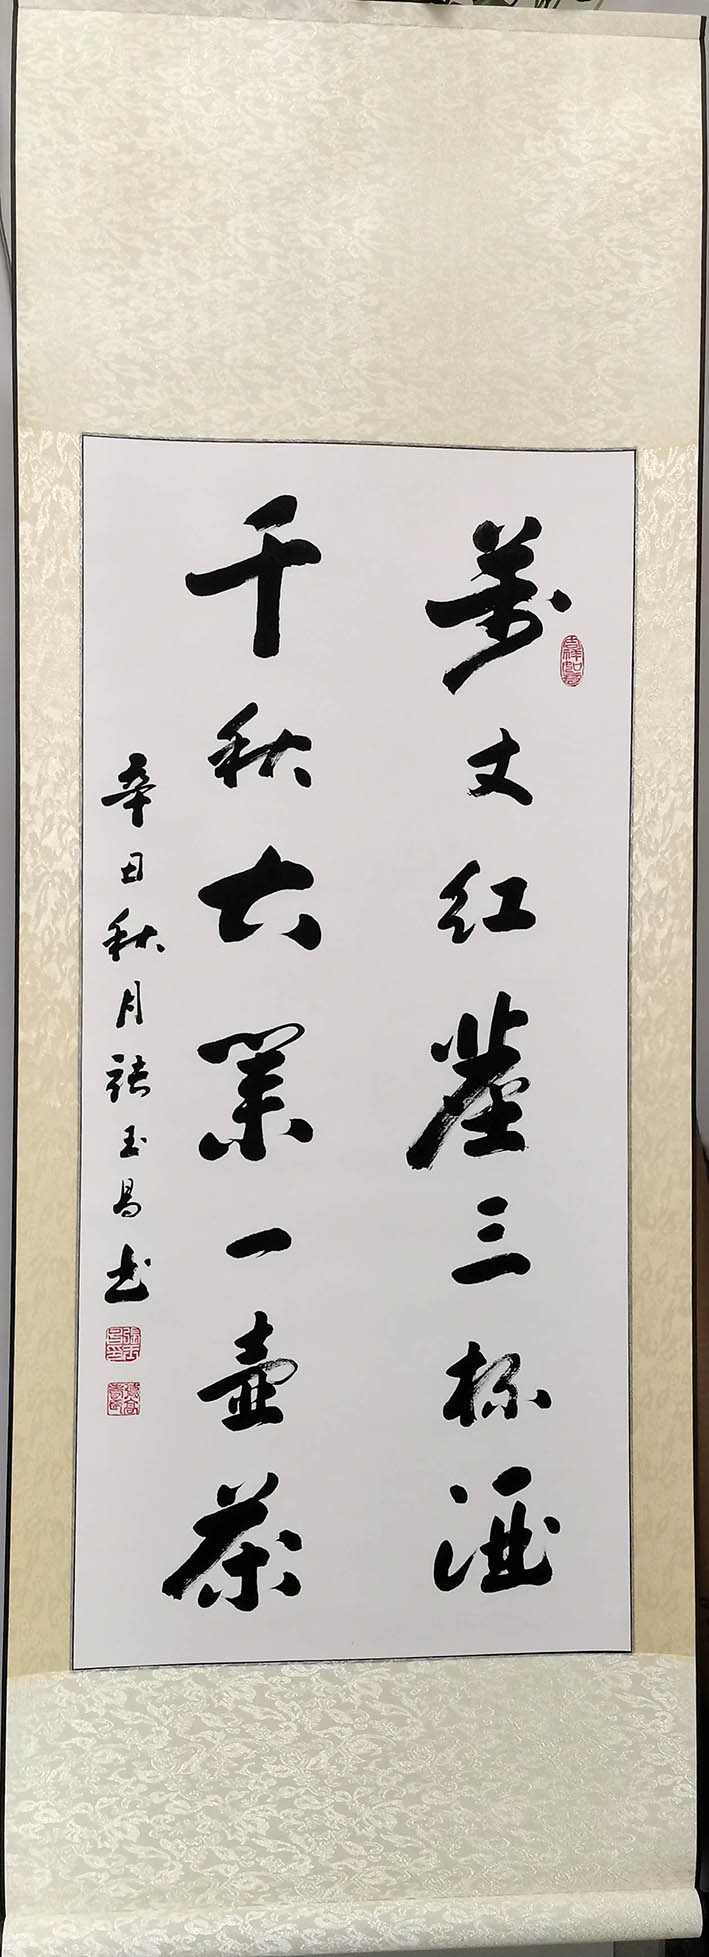 萬丈紅塵三杯酒
吉祥如意
千秋大業一壺茶
辛丑秋月張玉昌書